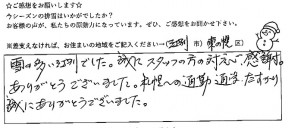 ☆ご感想をお願いします☆
今シーズンの排雪はいかがでしたか？
お客様の声が、私たちの原動力になっています。ぜひ、ご感想をお聞かせ下さい。
※差支えなければ、お住まいの地域をご記入ください→（江別 市・東の幌 区）
雪の多い江別でした。誠にスタッフの方の対応に感謝す。
ありがとうございました。札幌への通勤通学たすかり
誠にありがとうございました。